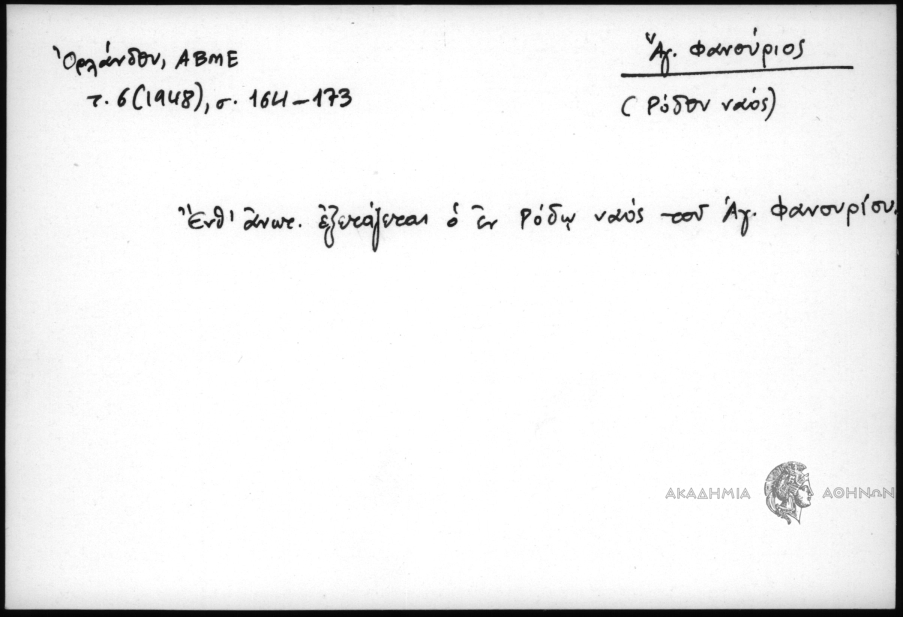 Ὀρλάνδου, ΑΒΜΕ
τ. 6 (1948), σ. 164-173
Ἅγ. Φανούριος
(Ρόδου ναός)
Ἔνθ' ἀνωτ. ἐξετάζεται ὁ ἐν Ρόδῳ ναός τοῦ Ἁγ. Φανουρίου.
ΑΚΑΔΗΜΙΑ ΑΘΗΝΩΝ